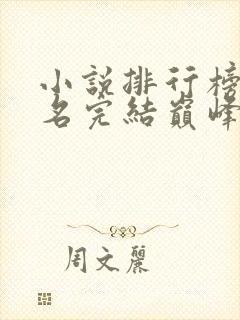 小說排行榜
名完結巔峰
周文麗